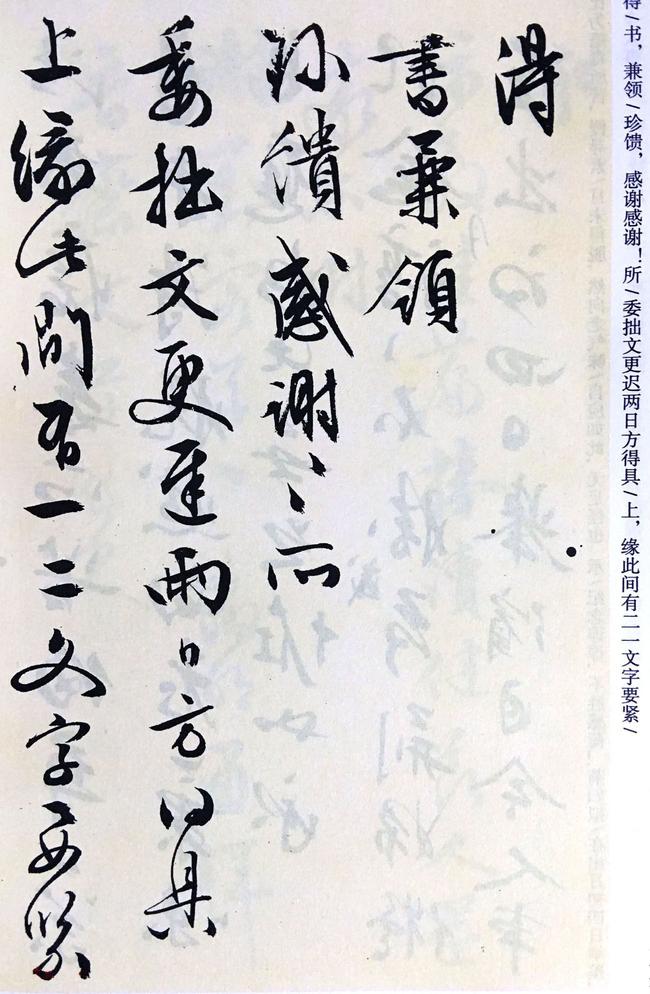 得
書兼領
珎饋感謝〻所
委拙文更遲兩日方得具
上緣此間有一二文字要緊
得/书，兼领/珍馈，感谢感谢！所/委拙文更迟两日方得具/上，缘此间有二一文字要紧/